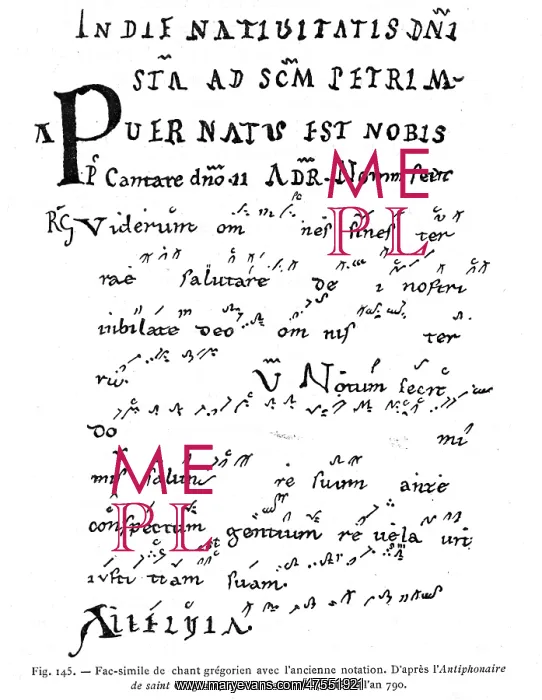 IN DIE NATIUITATIS DÑI
STA AD SCM PETRIM
A PUER NATUS EST NOBIS
Ps Cantate dno ii AD R Notum fecit
RG Viderunt om nes fines ter
rae salutare de i nostri
iubilate deo om nis ter
ra V Notum fecit
do mi
nus salutare re suum ante
conspectum gentium re uela uit
iusti tiam suam.
Alleluia.
ME
PL
ME
PL
Fig. 145. — Fac-simile de chant grégorien avec l'ancienne notation. D'après l'Antiphonaire
de saint l'an 790.
www.maryevans.com/47551921